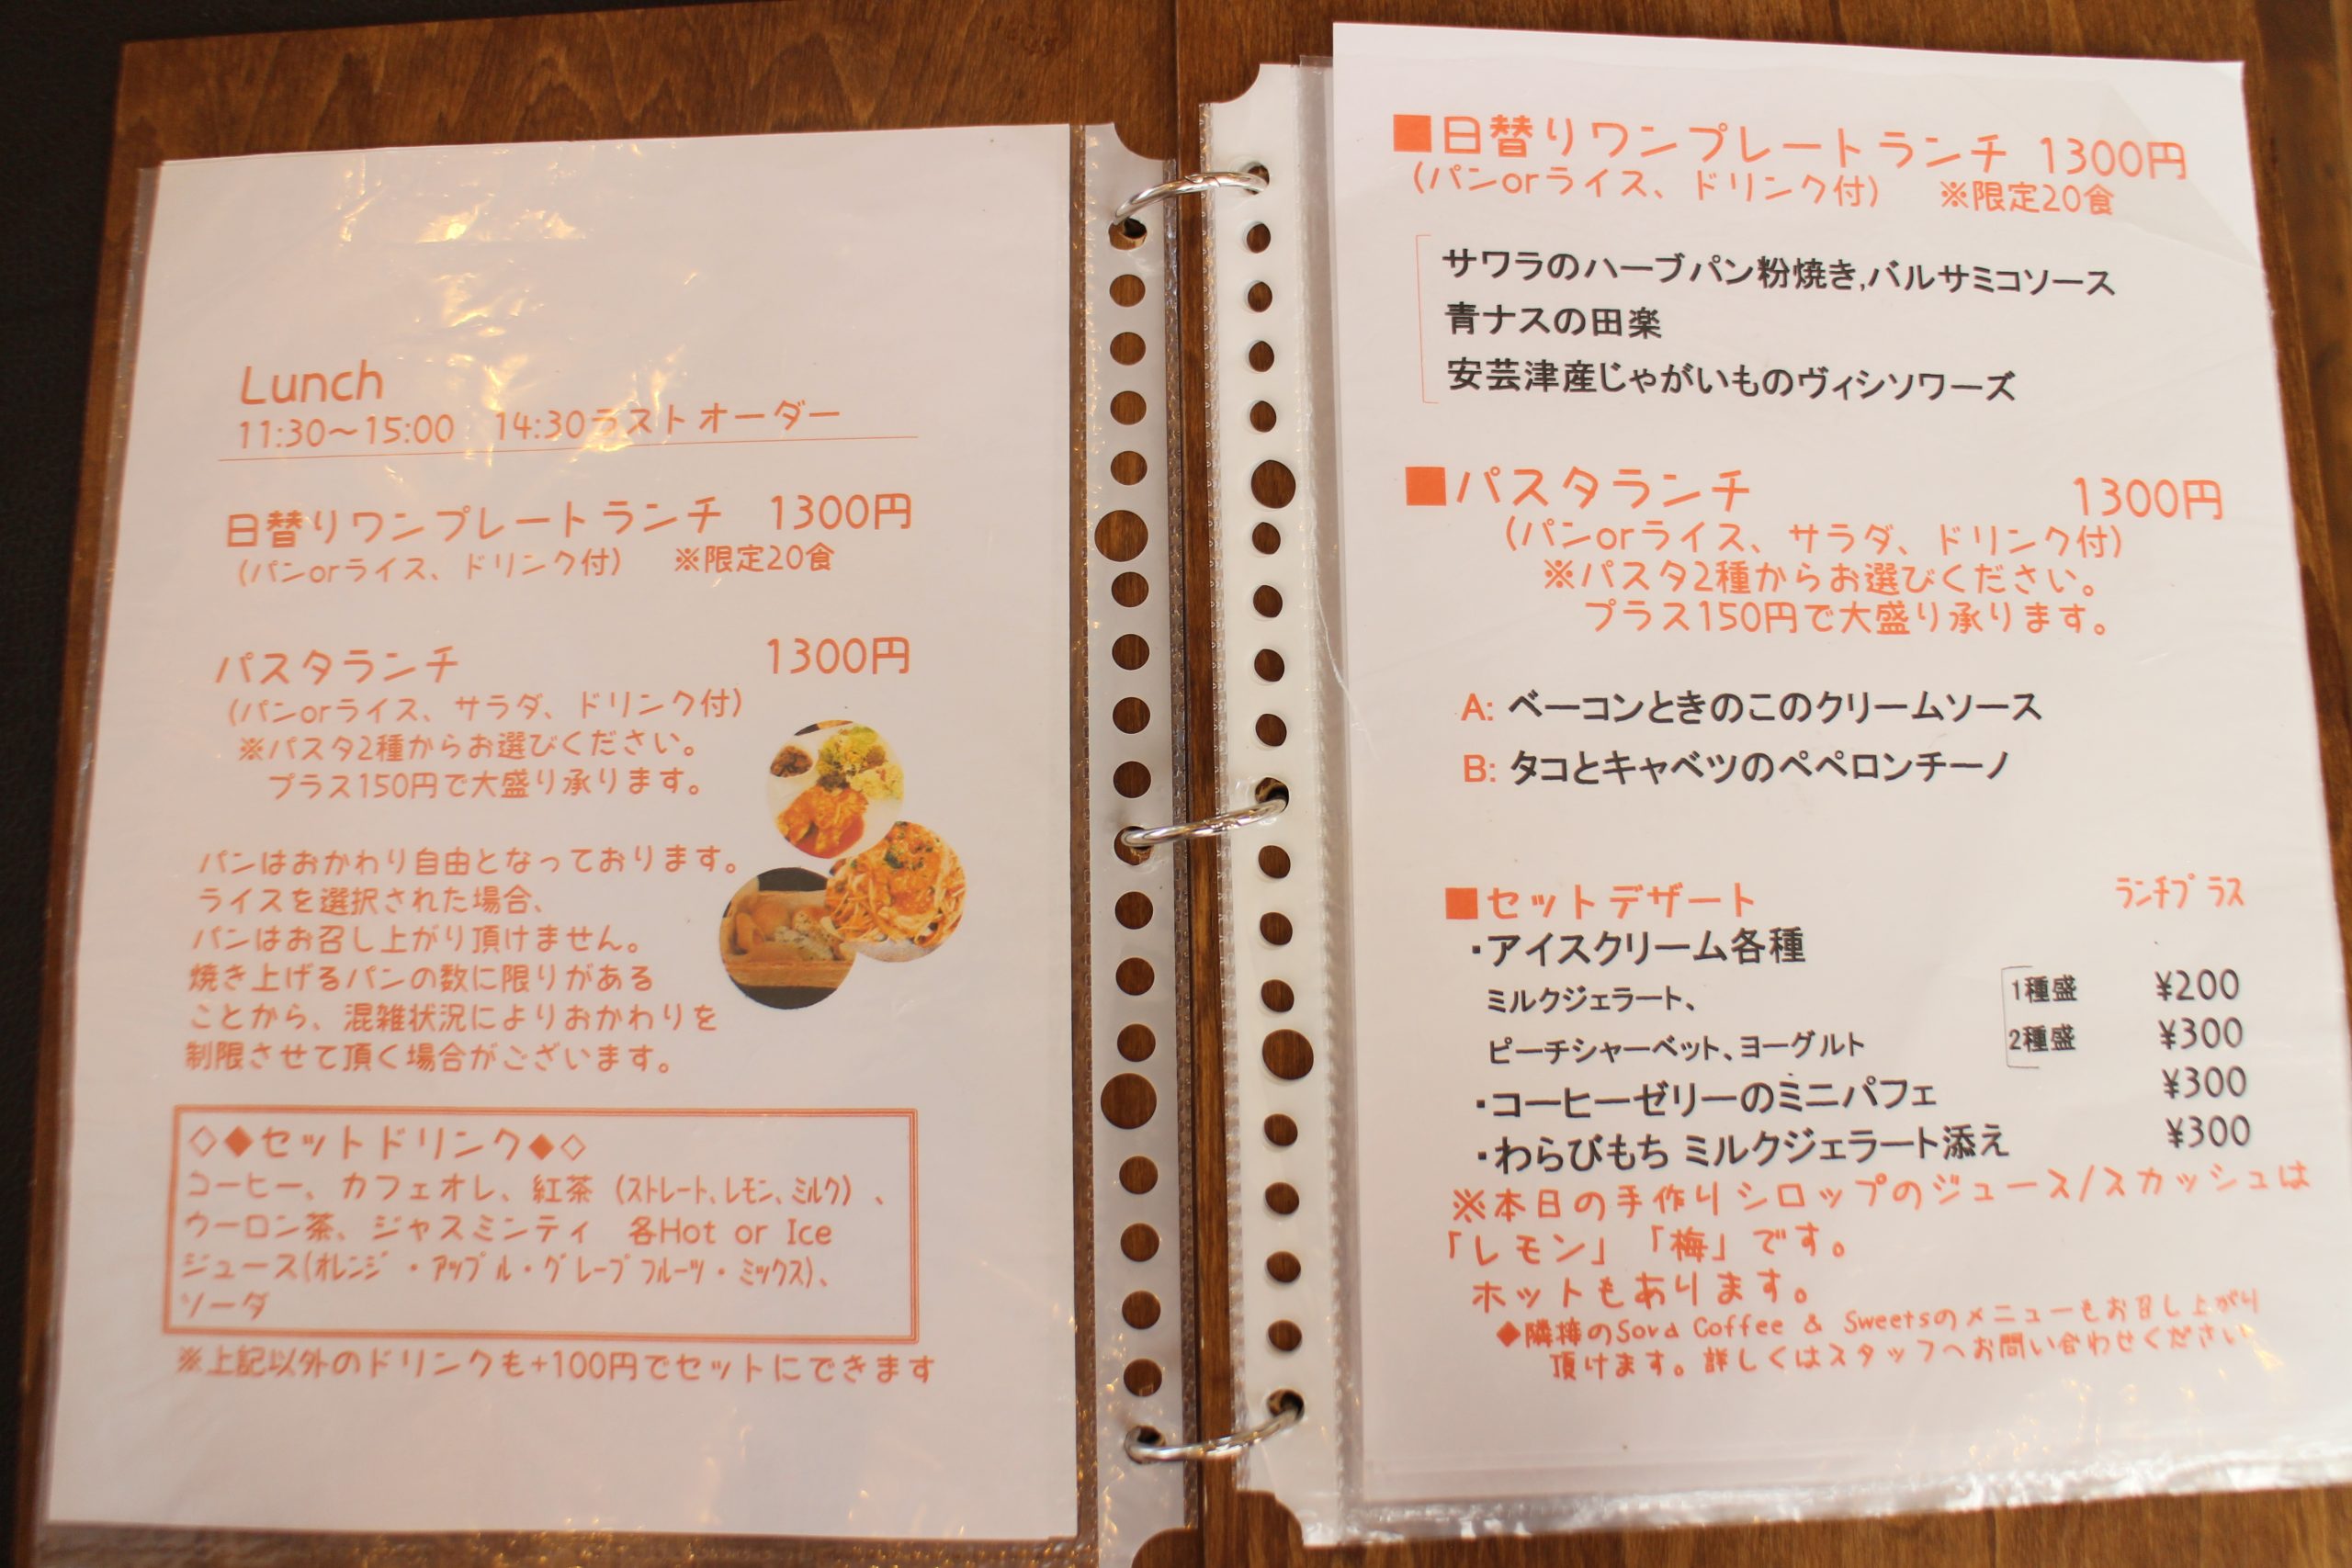 Lunch
11:30～15:00　14:30ラストオーダー
日替りワンプレートランチ　1300円
(パンorライス、ドリンク付)　※限定20食
パスタランチ　1300円
(パンorライス、サラダ、ドリンク付)
※パスタ2種からお選びください。
プラス150円で大盛り承ります。
パンはおかわり自由となっております。
ライスを選択された場合、
パンはお召し上がり頂けません。
焼き上げるパンの数に限りがある
ことから、混雑状況によりおかわりを
制限させて頂く場合がございます。
◇◆セットドリンク◆◇
コーヒー、カフェオレ、紅茶（ｽﾄﾚｰﾄ、ﾚﾓﾝ、ﾐﾙｸ）、
ウーロン茶、ジャスミンティ　各Hot or Ice
ジュース(ｵﾚﾝｼﾞ・ｱｯﾌﾟﾙ・ｸﾞﾚｰﾌﾟﾌﾙｰﾂ・ﾐｯｸｽ)、
ソーダ
※上記以外のドリンクも+100円でセットにできます
■日替りワンプレートランチ 1300円
(パンorライス、ドリンク付)　※限定20食
サワラのハーブパン粉焼き,バルサミコソース
青ナスの田楽
安芸津産じゃがいものヴィシソワーズ
■パスタランチ　1300円
(パンorライス、サラダ、ドリンク付)
※パスタ2種からお選びください。
プラス150円で大盛り承ります。
A: ベーコンときのこのクリームソース
B: タコとキャベツのペペロンチーノ
■セットデザート　ﾗﾝﾁﾌﾟﾗｽ
・アイスクリーム各種
ミルクジェラート、　1種盛　¥200
ピーチシャーベット、ヨーグルト　2種盛　¥300
・コーヒーゼリーのミニパフェ　¥300
・わらびもち ミルクジェラート添え　¥300
※本日の手作りシロップのジュース/スカッシュは
「レモン」「梅」です。
ホットもあります。
◆隣接のSora Coffee & Sweetsのメニューもお召し上がり
頂けます。詳しくはスタッフへお問い合わせください